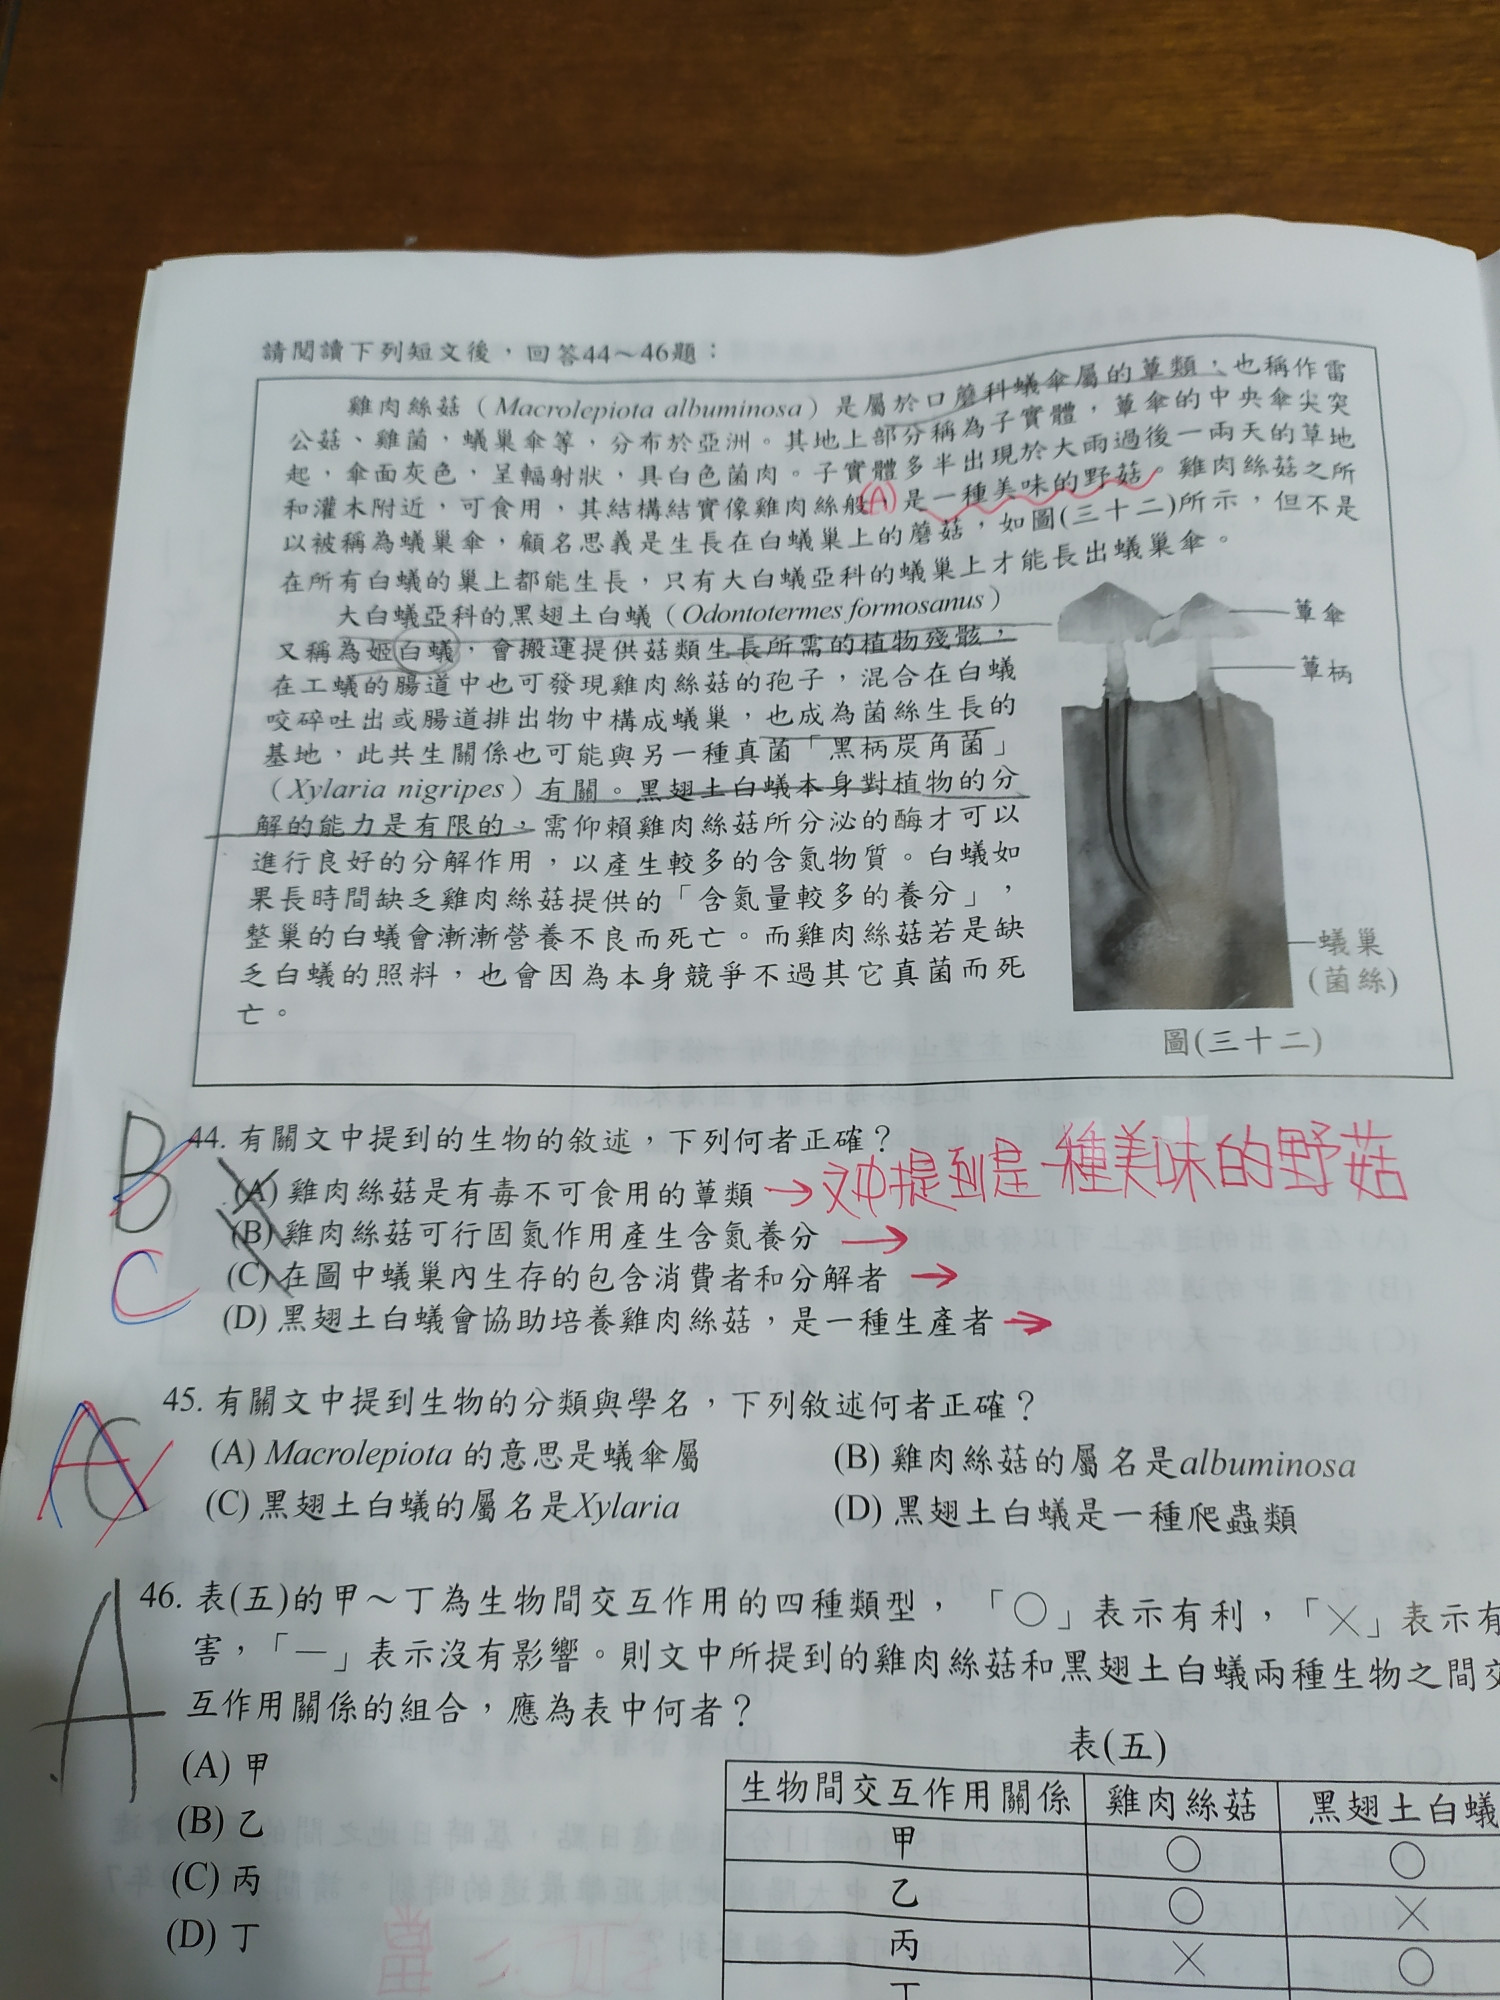 請閱讀下列短文後，回答44～46題：
雞肉絲菇（Macrolepiota albuminosa）是屬於口蘑科蟻傘屬的蕈類，也稱作雷
公菇、雞菌，蟻巢傘等，分布於亞洲。其地上部分稱為子實體，蕈傘的中央傘尖突
起，傘面灰色，呈輻射狀，具白色菌肉。子實體多半出現於大雨過後一兩天的草地
和灌木附近，可食用，其結構結實像雞肉絲般，是一種美味的野菇。雞肉絲菇之所
(A)
以被稱為蟻巢傘，顧名思義是生長在白蟻巢上的蘑菇，如圖(三十二)所示，但不是
在所有白蟻的巢上都能生長，只有大白蟻亞科的蟻巢上才能長出蟻巢傘。
大白蟻亞科的黑翅土白蟻（Odontotermes formosanus）
又稱為姬白蟻，會搬運提供菇類生長所需的植物殘骸，
在工蟻的腸道中也可發現雞肉絲菇的孢子，混合在白蟻
咬碎吐出或腸道排出物中構成蟻巢，也成為菌絲生長的
基地，此共生關係也可能與另一種真菌「黑柄炭角菌」
（Xylaria nigripes）有關。黑翅土白蟻本身對植物的分
解的能力是有限的，需仰賴雞肉絲菇所分泌的酶才可以
進行良好的分解作用，以產生較多的含氮物質。白蟻如
果長時間缺乏雞肉絲菇提供的「含氮量較多的養分」，
整巢的白蟻會漸漸營養不良而死亡。而雞肉絲菇若是缺
乏白蟻的照料，也會因為本身競爭不過其它真菌而死
亡。
蕈傘
蕈柄
蟻巢
(菌絲)
圖(三十二)
B
C
44. 有關文中提到的生物的敘述，下列何者正確？
(A) 雞肉絲菇是有毒不可食用的蕈類 →文中提到是一種美味的野菇
(B) 雞肉絲菇可行固氮作用產生含氮養分 →
(C) 在圖中蟻巢內生存的包含消費者和分解者 →
(D) 黑翅土白蟻會協助培養雞肉絲菇，是一種生產者 →
C
A
45. 有關文中提到生物的分類與學名，下列敘述何者正確？
(A) Macrolepiota 的意思是蟻傘屬
(B) 雞肉絲菇的屬名是albuminosa
(C) 黑翅土白蟻的屬名是Xylaria
(D) 黑翅土白蟻是一種爬蟲類
A
46. 表(五)的甲～丁為生物間交互作用的四種類型，「○」表示有利，「×」表示有
害，「－」表示沒有影響。則文中所提到的雞肉絲菇和黑翅土白蟻兩種生物之間交
互作用關係的組合，應為表中何者？
(A) 甲
(B) 乙
(C) 丙
(D) 丁
表(五)
生物間交互作用關係 雞肉絲菇 黑翅土白蟻
甲 ○ ○
乙 ○ ×
丙 × ○
丁